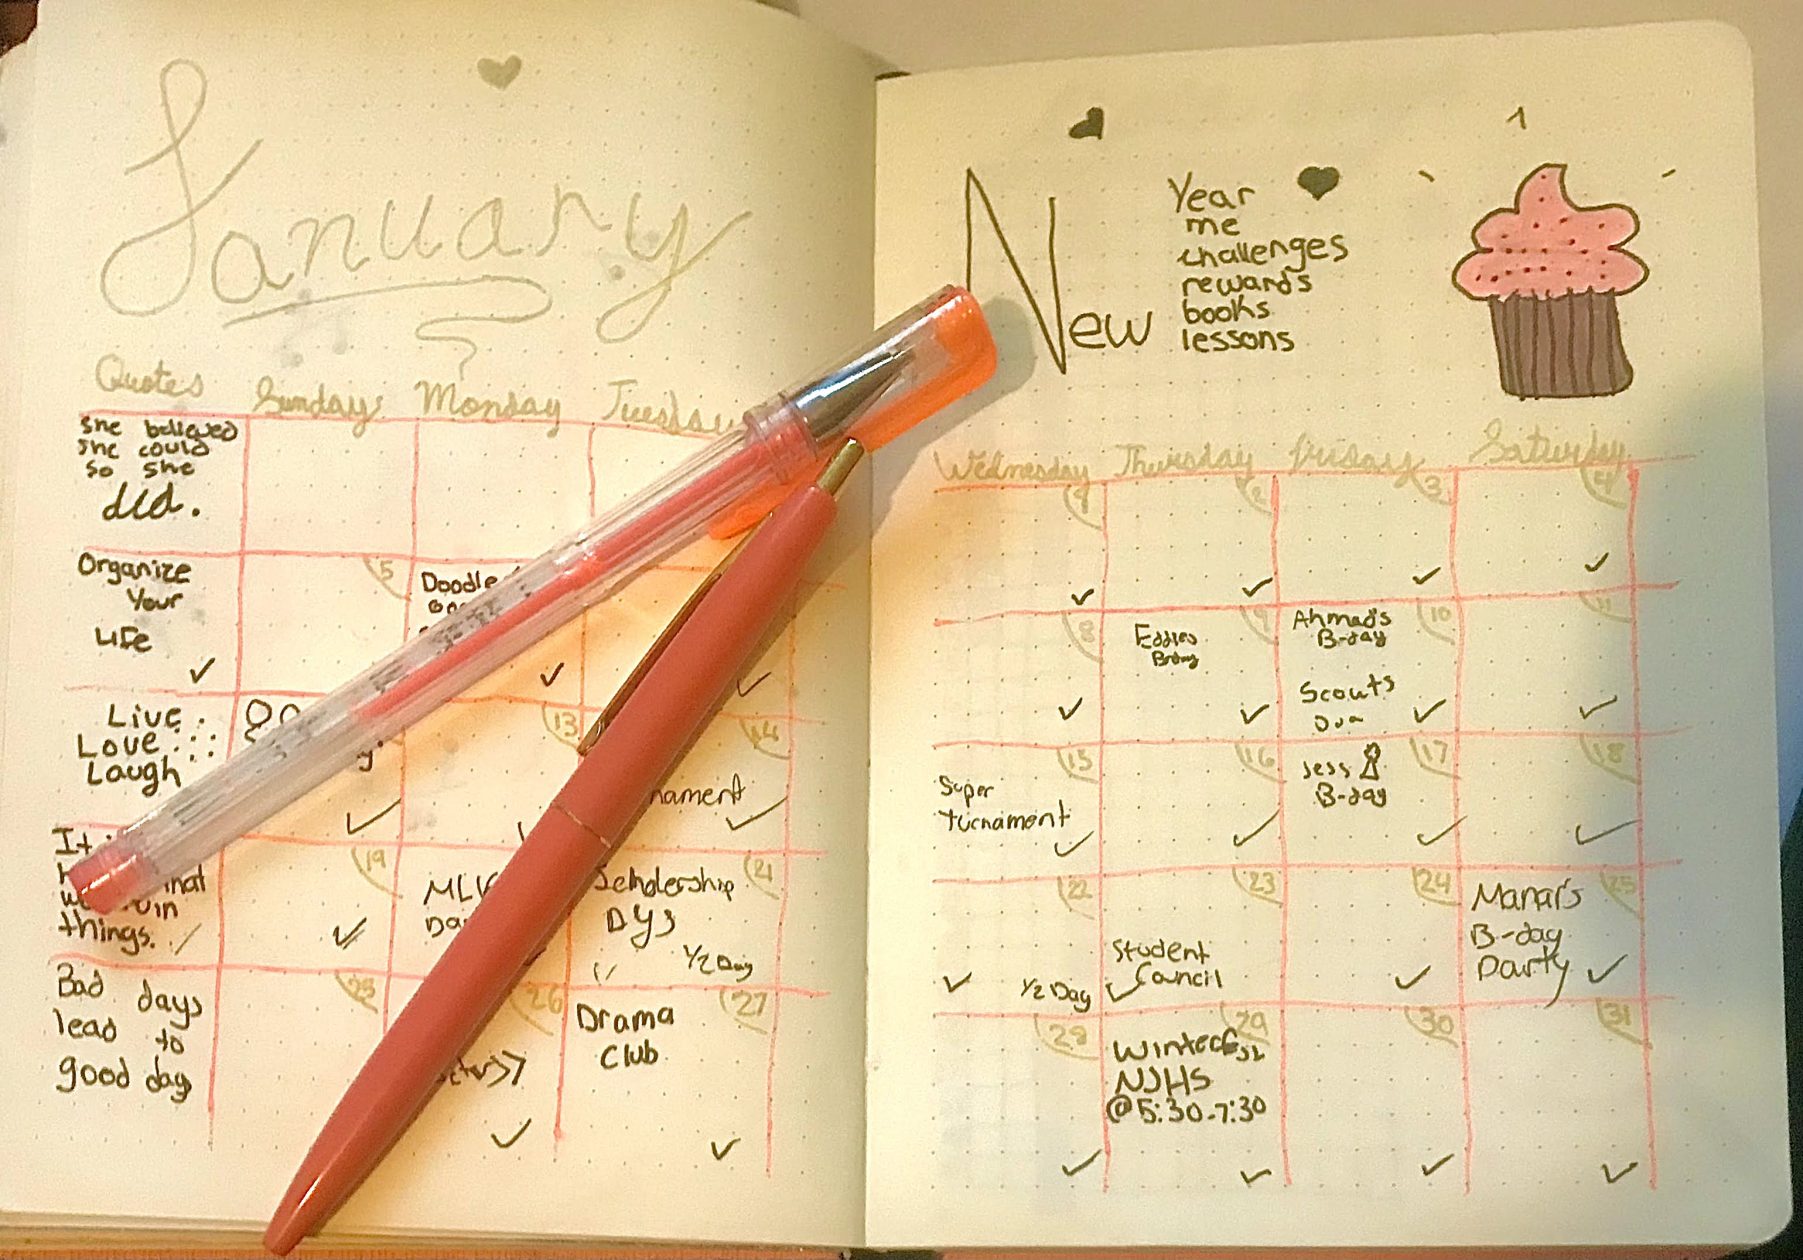 January
New
Year
me
challenges
rewards
books
lessons
Quotes Sunday Monday
Wednesday Thursday Friday Saturday
She believed
She could
so she
did.
1 2 3 4
Organize
Your
Life
5
Doodle
8
Eddies
Bday
9
Ahmad's
B-day
10
Scouts
11
Live
Love
Laugh
13
14
nament
15
Super
turnament
16
Jess
B-day
17
18
It
things.
19
MLK
Scholership
Dys
21
1/2 Day
22
1/2 Day
23
Student
Council
24
Manar's
B-day
Party
25
Bad days
lead to
good day
25
26
Drama
Club
27
28
29
NJHS
@5:30-7:30
30
31